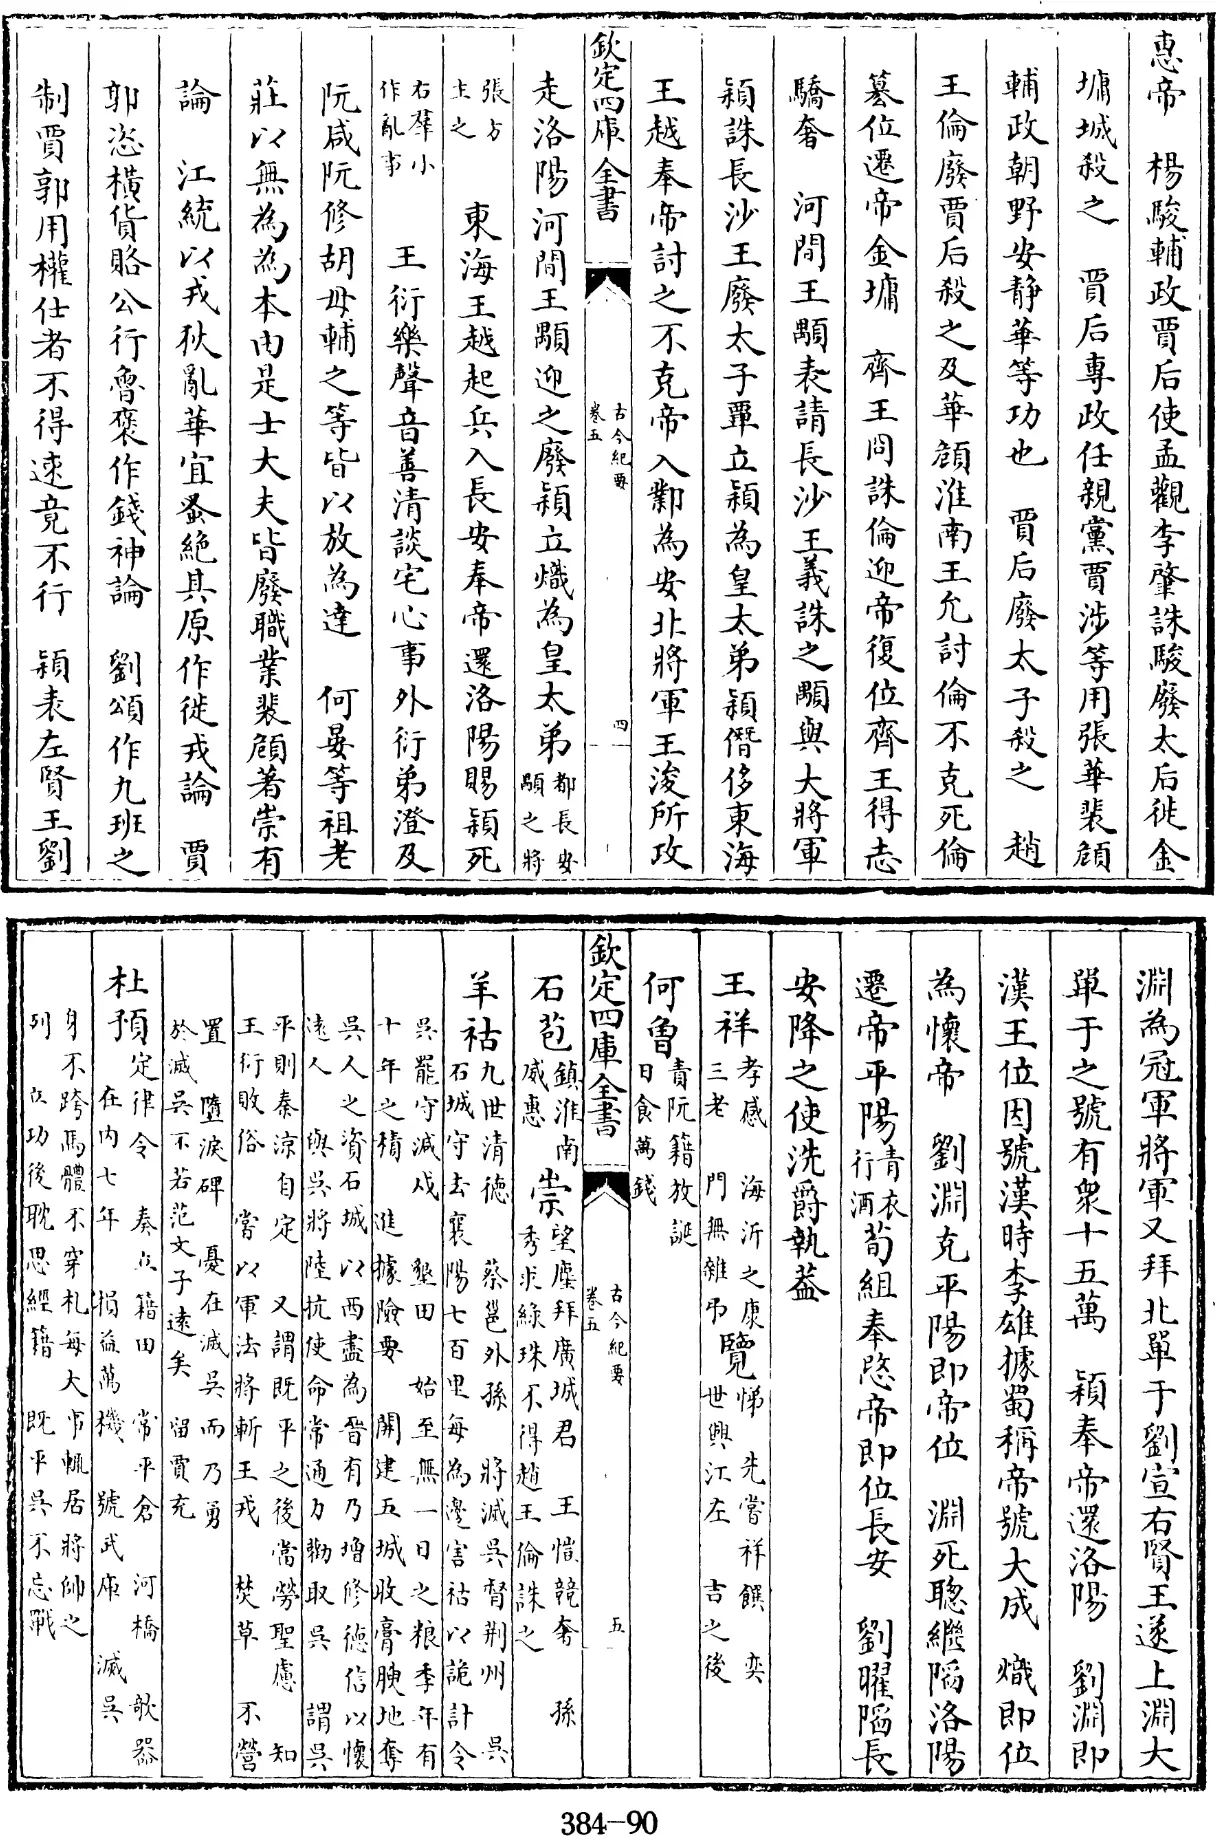 惠帝　楊駿輔政賈后使孟觀李肇誅駿廢太后徙金
墉城殺之　賈后專政任親黨賈涉等用張華裴頠
輔政朝野安静華等功也　賈后廢太子殺之　趙
王倫廢賈后殺之及華頠淮南王允討倫不克死倫
簒位遷帝金墉　齊王冏誅倫迎帝復位齊王得志
驕奢　河間王顒表請長沙王義誅之顒與大將軍
頴誅長沙王廢太子覃立頴為皇太弟頴僭侈東海
王越奉帝討之不克帝入鄴為安北將軍王浚所攻
欽定四庫全書
古今紀要
卷五
四
走洛陽河間王顒迎之廢頴立熾為皇太弟都長安
顒之將
張方
主之　東海王越起兵入長安奉帝還洛陽賜頴死
右羣小
作亂事　王衍樂聲音善清談宅心事外衍弟澄及
阮咸阮修胡毋輔之等皆以放為達　何晏等祖老
莊以無為為本由是士大夫皆廢職業裴頠著崇有
論　江統以戎狄亂華宜蚤絶其原作徙戎論　賈
郭恣橫貨賂公行魯褒作錢神論　劉頌作九班之
制賈郭用權仕者不得速竟不行　頴表左賢王劉
淵為冠軍將軍又拜北單于劉宣右賢王遂上淵大
單于之號有衆十五萬　頴奉帝還洛陽　劉淵即
漢王位因號漢時李雄據蜀稱帝號大成　熾即位
為懷帝　劉淵克平陽即帝位　淵死聰繼陷洛陽
遷帝平陽青衣
行酒荀組奉愍帝即位長安　劉曜陷長
安降之使洗爵執蓋
王祥孝感　海沂之康
三老　門無雜弔覽悌　先嘗祥饌　奕
世興江左　吉之後
何曾責阮籍放誕
日食萬錢
欽定四庫全書
古今紀要
卷五
五
石苞鎮淮南
威惠崇望塵拜廣城君　王愷競奢　孫
秀求綠珠不得趙王倫誅之
羊祜九世清德　蔡邕外孫　將滅吳督荆州　吳
石城守去襄陽七百里每為邊害祜以詭計令
吳罷守減戍　墾田　始至無一日之粮季年有
十年之積　進據險要　開建五城收膏腴地奪
吳人之資石城以西盡為晉有乃增修德信以懷
逺人　與吳將陸抗使命常通力勸取吳　謂吳
平則秦涼自定　又謂既平之後當勞聖慮　知
王衍敗俗　嘗以軍法將斬王戎　焚草　不營
置　墮淚碑　憂在滅吳而乃勇
於滅吳不若范文子逺矣　留賈充
杜預定律令　奏立籍田　常平倉　河橋　欹器
在内七年　損益萬機　號武庫　滅吳
身不跨馬體不穿札每大事輒居將帥之
列　立功後耽思經籍　既平吳不忘戰
384-90